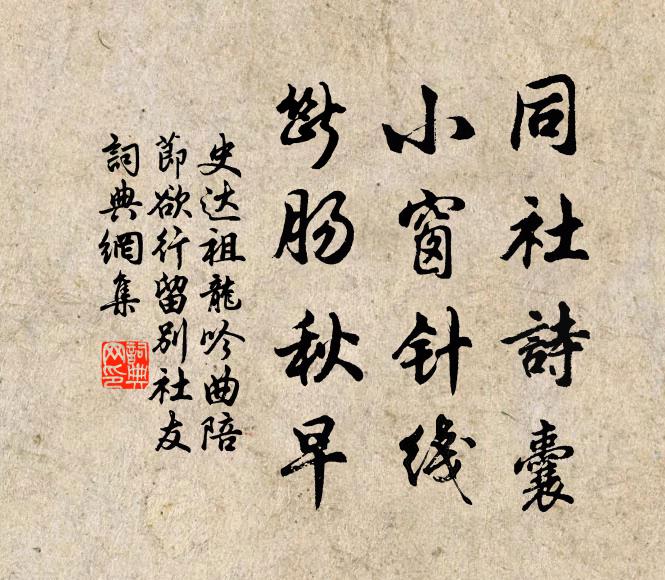 同社詩囊
小窗针线
断肠秋早
史达祖龍吟曲陪
節欲行留别社友
詞典網集
詞典网印